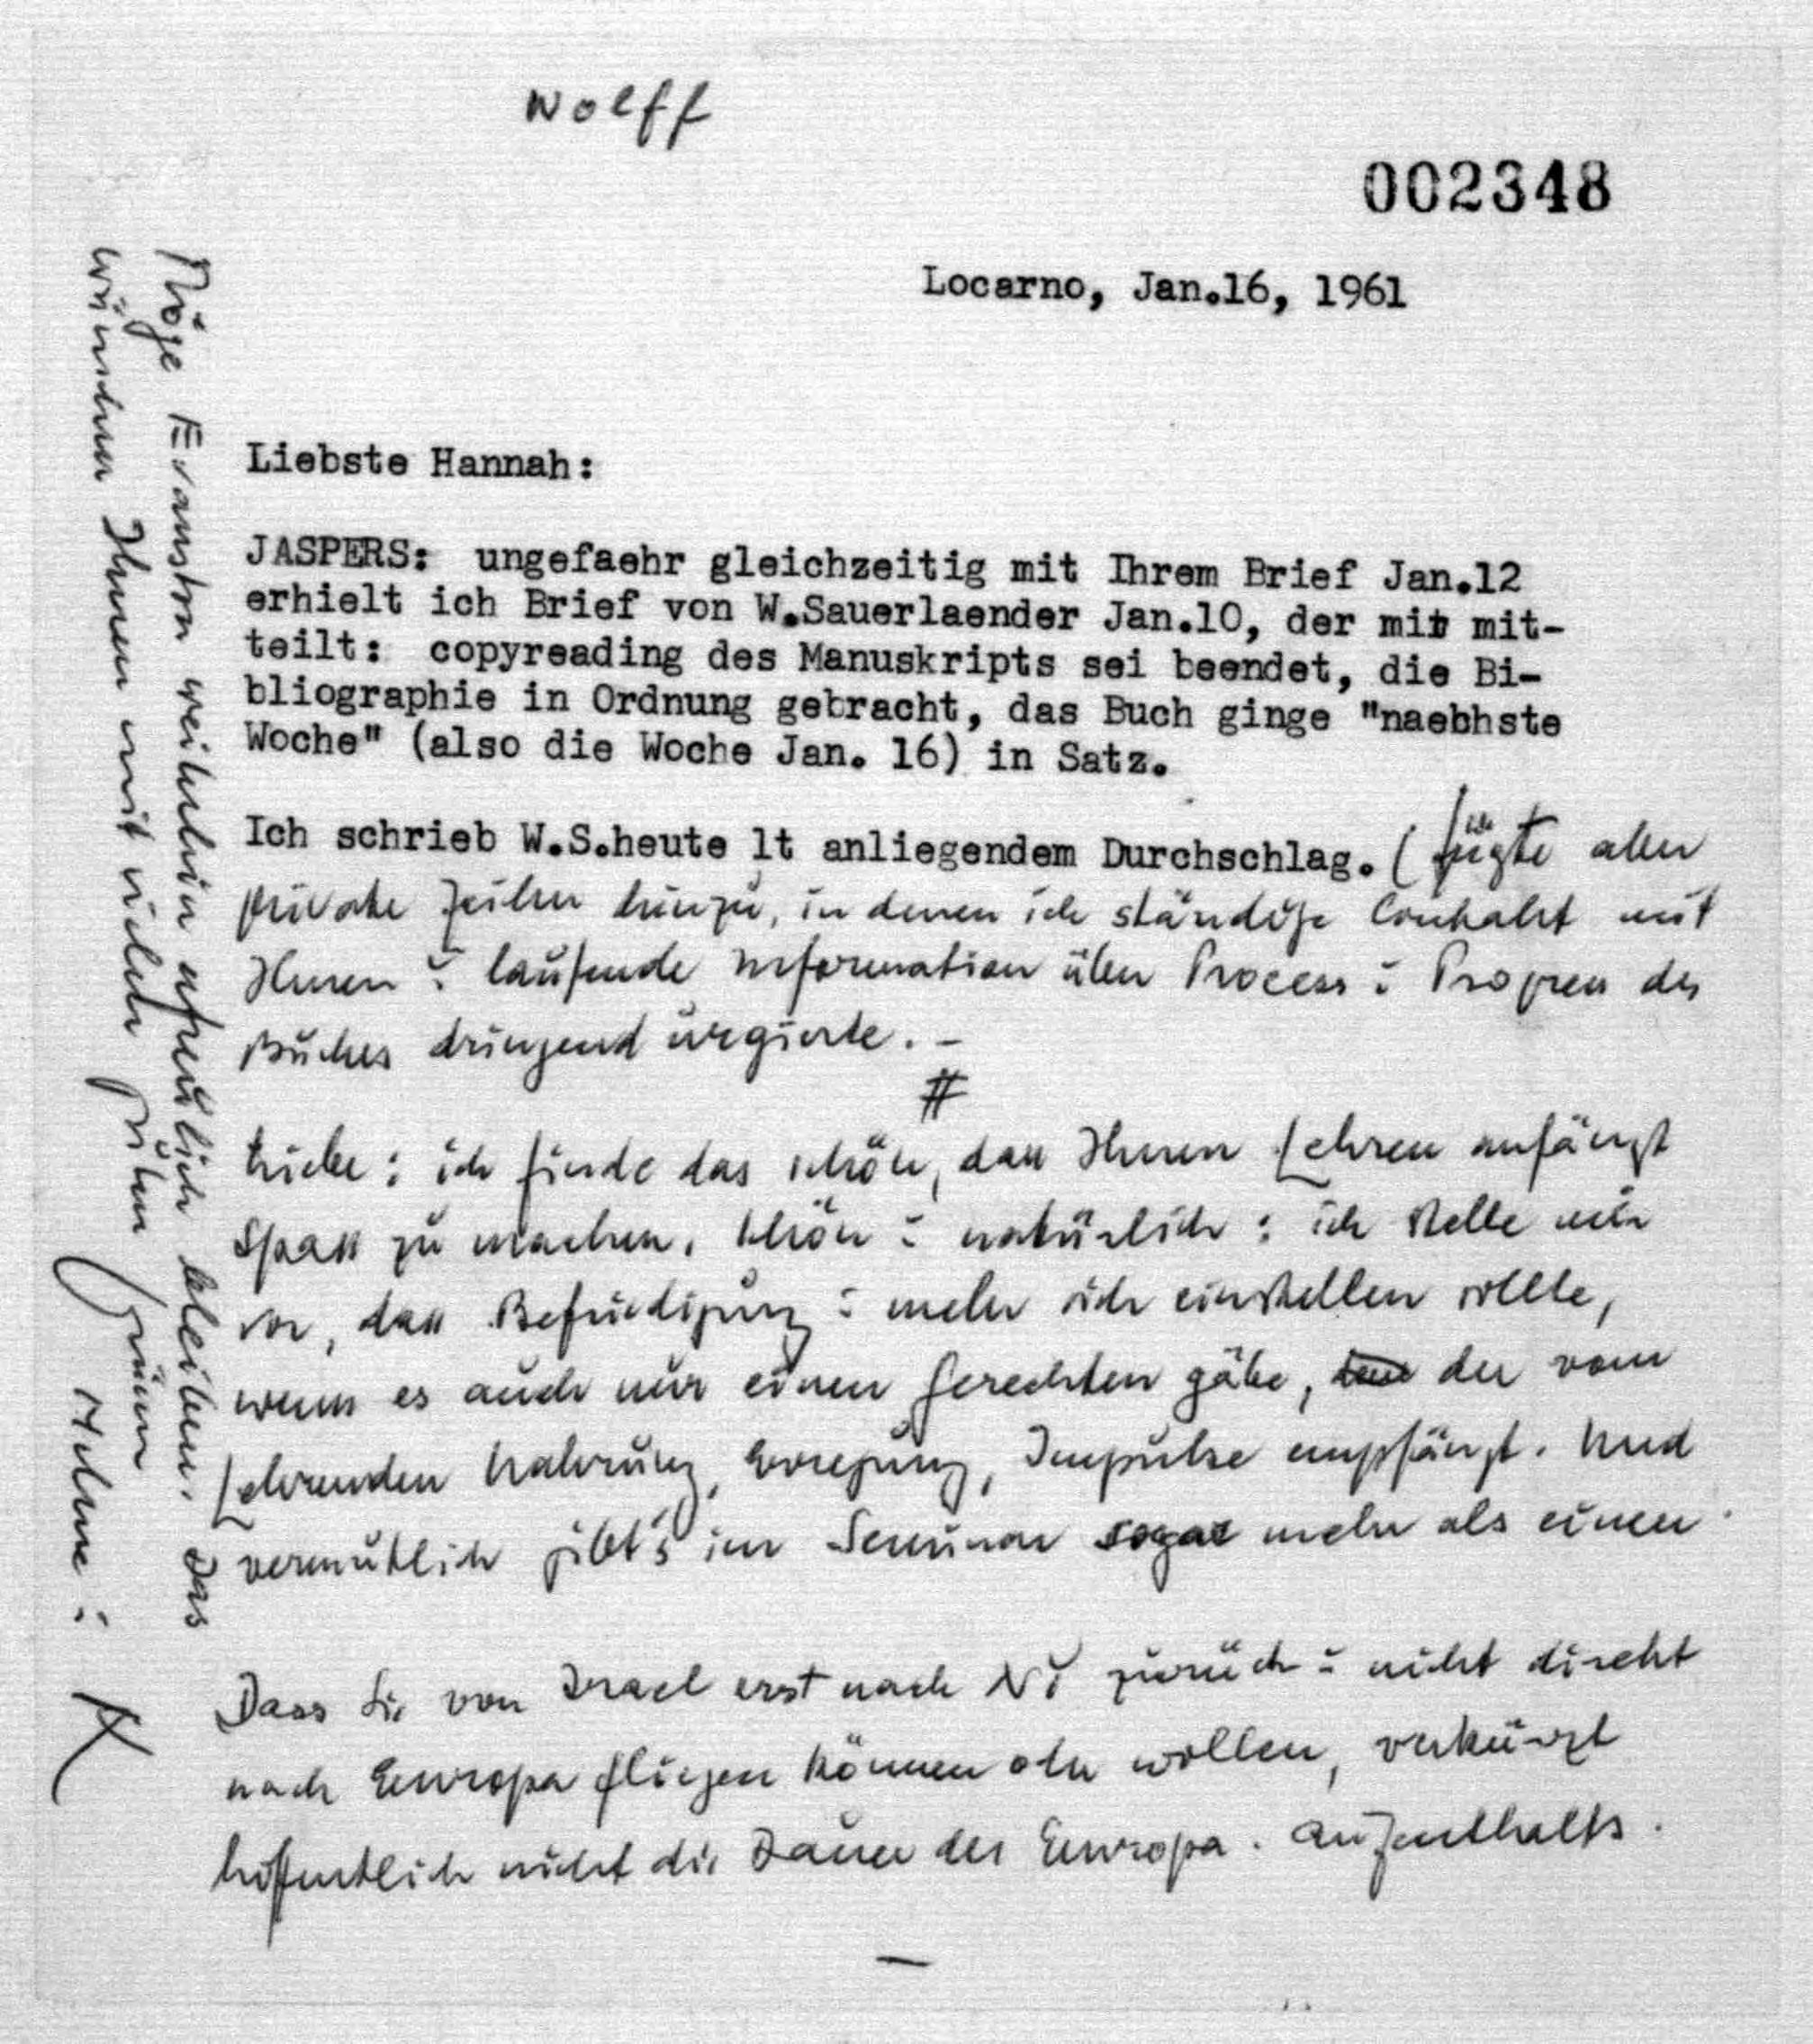 Wolff
002348
Locarno, Jan.16, 1961
Liebste Hannah:
JASPERS: ungefaehr gleichzeitig mit Ihrem Brief Jan.12
erhielt ich Brief von W.Sauerlaender Jan.10, der mir mit-
teilt: copyreading des Manuskripts sei beendet, die Bi-
bliographie in Ordnung gebracht, das Buch ginge "naebhste
Woche" (also die Woche Jan. 16) in Satz.
Ich schrieb W.S.heute lt anliegendem Durchschlag. ( fügte ich aber
private Zeilen hinzu, in denen ich ständige Contakt mit
Ihnen u laufende Information über Process u Progress des
Buches dringend urgierte. –
#
Liebe: ich finde das schön, dass Ihnen Lehren anfängt
Spass zu machen, schön u natürlich: ich stelle mir
vor, dass Befriedigung u mehr sich einstellen sollte,
wenn es auch nur einen Gerechten gäbe, der vom
Lehrenden Nahrung, Erregung, Impulse empfängt. Und
vermutlich gibt's im Seminar sogar mehr als einen.
Dass Sie von Israel erst nach NY zurück u nicht direkt
nach Europa fliegen können oder wollen, verkürzt
hoffentlich nicht die Dauer des Europa-Aufenthalts.
–
Möge Evanston weiterhin erfreulich bleiben. Das
wünschen Ihnen mit vielen guten Grüssen
Helene u
K